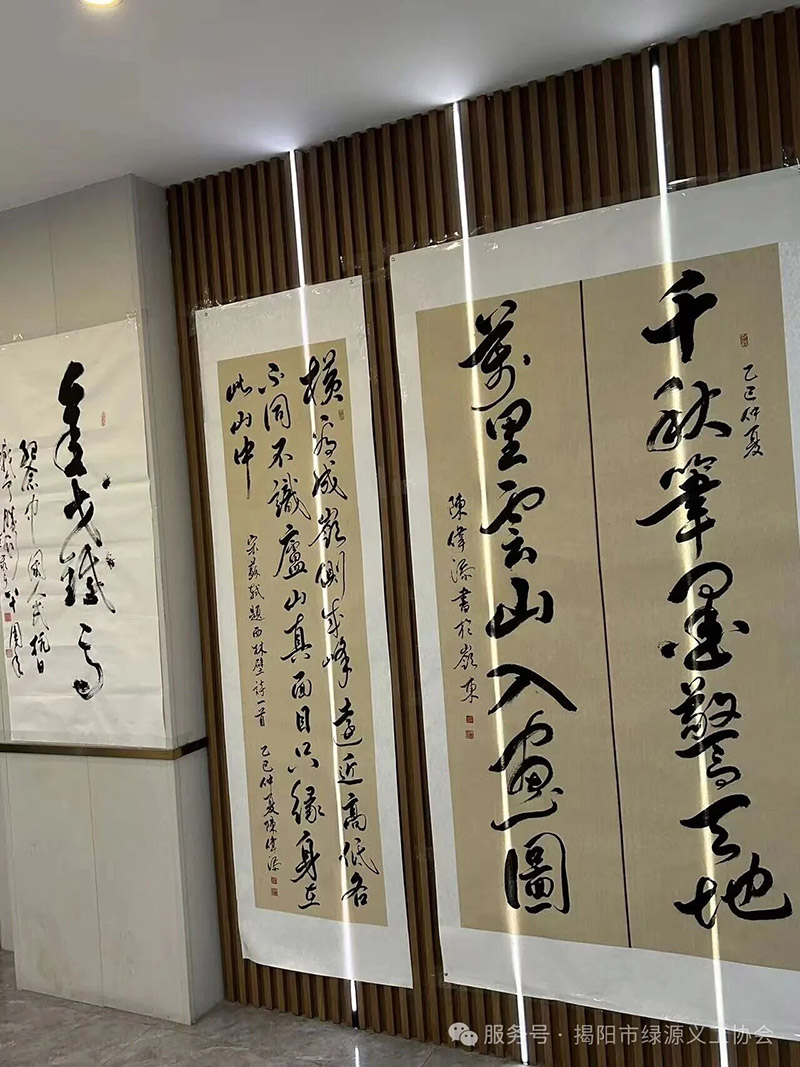 千秋筆墨驚天地
乙巳仲夏
萬里雲山入畫圖
陳偉添書於嶺東
橫看成嶺側成峰遠近高低各
不同不識廬山真面目只緣身在
此山中
宋蘇軾題西林壁詩一首 乙巳仲夏陳偉添
金戈鐵馬
紀念中國人民抗日
服务号 · 揭阳市绿源义工协会